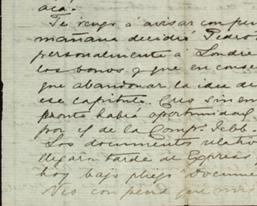 aca.
Te vengo a avisar con pen
mañana decidió Pedro
personalmente a Londre
los bonos, y que en conse
que abandonar la idea de
ese capítulo. Creo sin em
pronto habrá oportunidad
por of de la Comp. Jebb.
Los documentos relativo
llegaron tarde de Express
hoy bajo pliego Docume
Veo con pena que